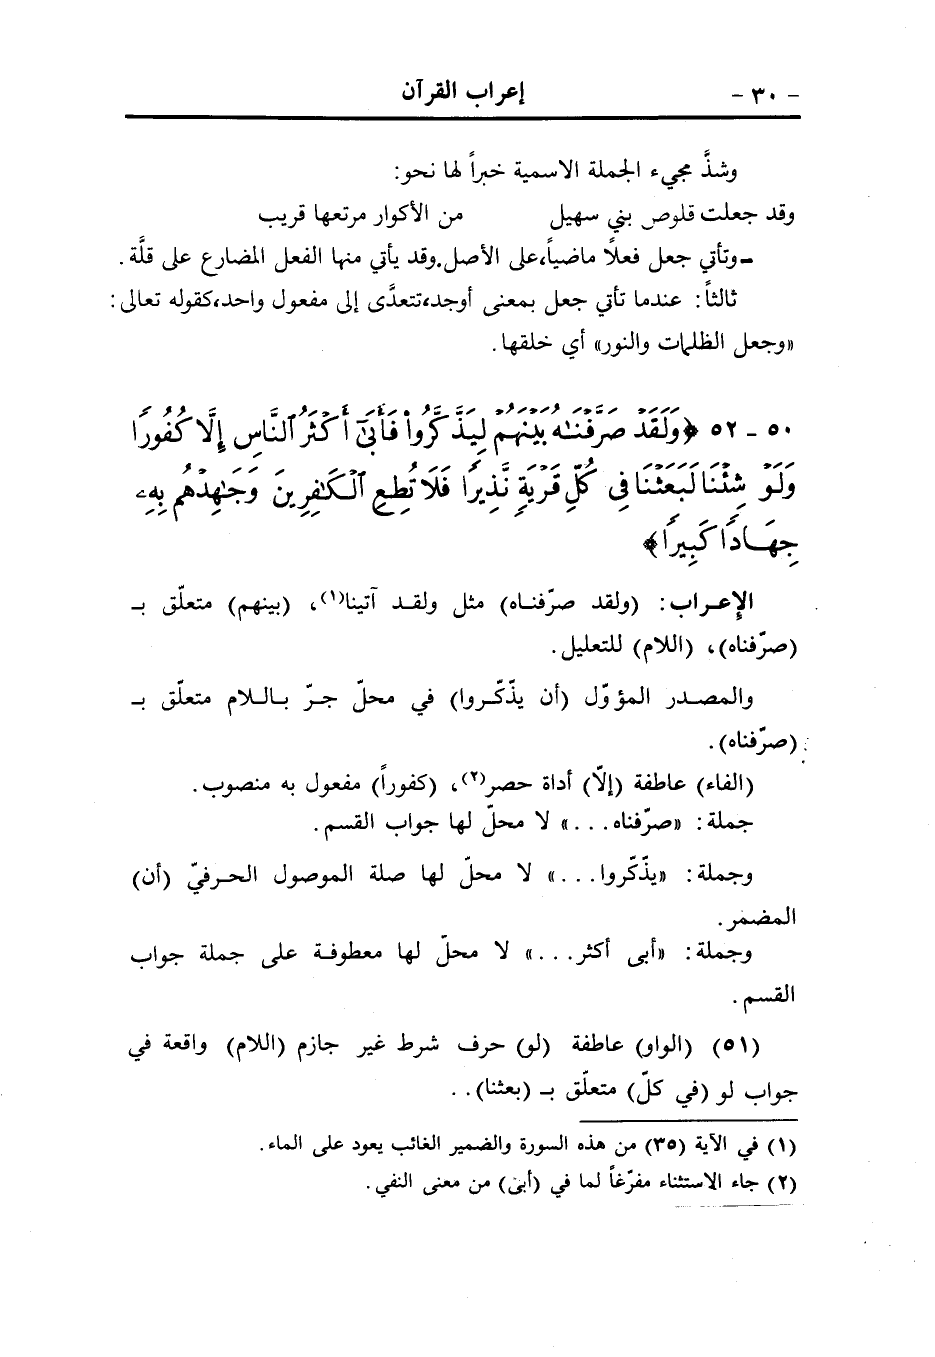 - ٣٠ - إعراب القرآن
وشذَّ مجيء الجملة الاسمية خبراً لها نحو:
وقد جعلت قلوص بني سهيل من الأكوار مرتعها قريب
ـ وتأتي جعل فعلاً ماضياً، على الأصل. وقد يأتي منها الفعل المضارع على قلَّة.
ثالثاً: عندما تأتي جعل بمعنى أوجد، تتعدَّى إلى مفعول واحد، كقوله تعالى:
«وجعل الظلمات والنور» أي خلقها.
٥٠ - ٥٢ ﴿وَلَقَدْ صَرَّفْنَٰهُ بَيْنَهُمْ لِيَذَّكَّرُوا۟ فَأَبَىٰٓ أَكْثَرُ ٱلنَّاسِ إِلَّا كُفُورًا
وَلَوْ شِئْنَا لَبَعَثْنَا فِى كُلِّ قَرْيَةٍ نَّذِيرًا فَلَا تُطِعِ ٱلْكَٰفِرِينَ وَجَٰهِدْهُم بِهِۦ
جِهَادًا كَبِيرًا﴾
الإعراب: (ولقد صرّفناه) مثل ولقد آتينا(١)، (بينهم) متعلّق بـ
(صرّفناه)، (اللام) للتعليل.
والمصدر المؤوّل (أن يذّكّروا) في محلّ جرّ باللام متعلّق بـ
(صرّفناه).
(الفاء) عاطفة (إلّا) أداة حصر(٢)، (كفوراً) مفعول به منصوب.
جملة: «صرّفناه...» لا محلّ لها جواب القسم.
وجملة: «يذّكّروا...» لا محلّ لها صلة الموصول الحرفيّ (أن)
المضمر.
وجملة: «أبى أكثر...» لا محلّ لها معطوفة على جملة جواب
القسم.
(٥١) (الواو) عاطفة (لو) حرف شرط غير جازم (اللام) واقعة في
جواب لو (في كلّ) متعلّق بـ (بعثنا)..
(١) في الآية (٣٥) من هذه السورة والضمير الغائب يعود على الماء.
(٢) جاء الاستثناء مفرّغاً لما في (أبى) من معنى النفي.